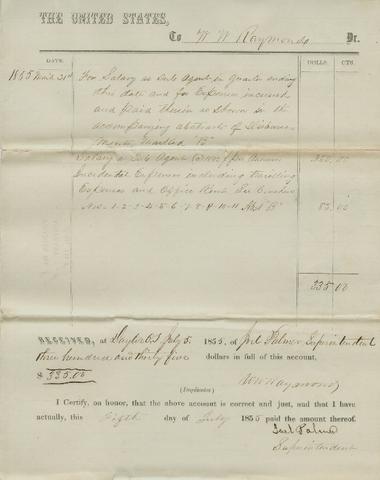 THE UNITED STATES,
To W W Raymond Dr.
DATE. DOLLS. CTS.
1855 March 31st For Salary as Sub Agent in quarter ending
this date and for Expenses incurred
and paid therein as shown in the
accompanying abstract of Disburse-
ments, marked "B"
Salary as Sub Agent ($1000) per Annum 250.00
Incidental Expenses including traveling
Expenses and Office Rent See Vouchers
Nos. 1-2-3-4-5-6-7-8-9-10-11 Abst "B" 85 00
335 00
RECEIVED, at Dayton O.T. July 5 1855, of Joel Palmer Superintendent
three hundred and thirty five dollars in full of this account.
$ 335.00
W W Raymond
(Duplicates)
I Certify, on honor, that the above account is correct and just, and that I have
actually, this Fifth day of July 1855 paid the amount thereof.
Joel Palmer
Superintendent